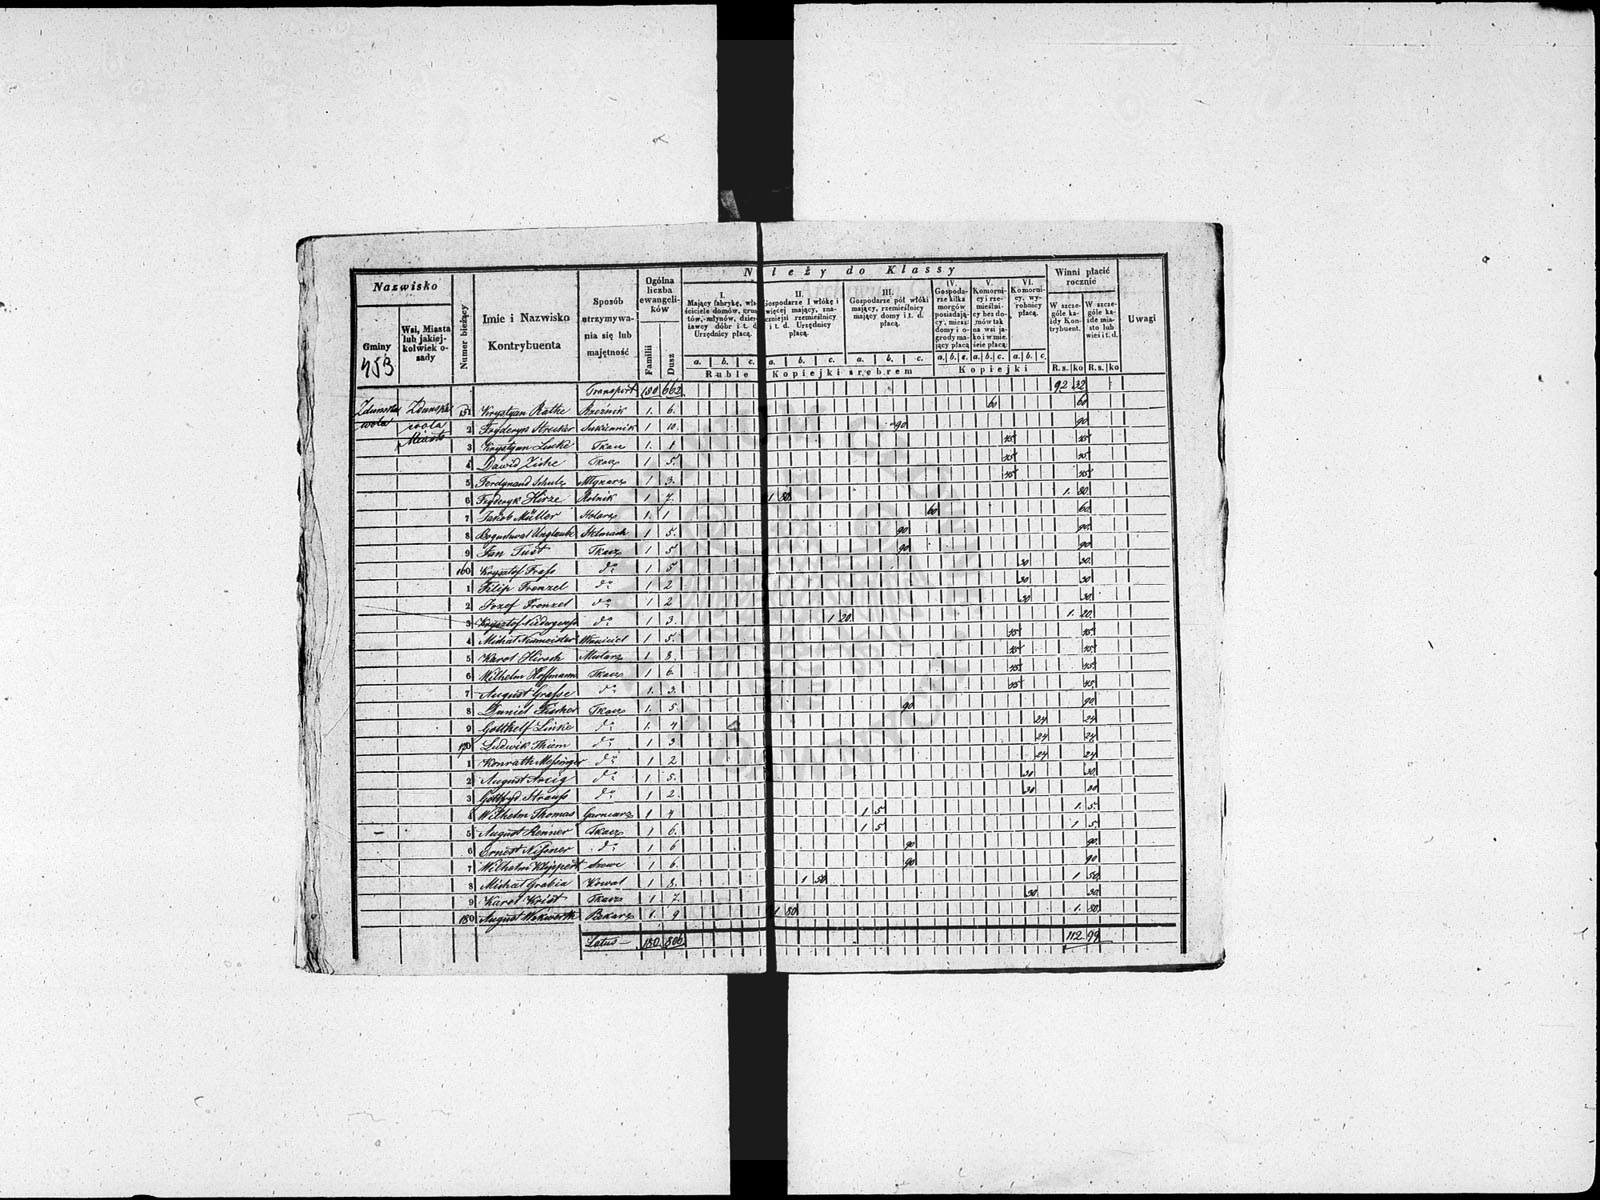 Nazwisko
Gminy
Wsi, Miasta lub jakiej-kolwiek o-sady
Numer bieżący
Imie i Nazwisko Kontrybuenta
Sposób utrzymywa-nia się lub majętność
Ogólna liczba ewangeli-ków
Familii
Dusz
Należy do Klassy
I. Mający fabrykę, wła-ściciele domów, grun-tów, młynów, dzier-żawcy dóbr i t. d. Urzędnicy płacą.
II. Gospodarze 1 włókę i więcej mający, zna-czniejsi rzemieślnicy i t. d. Urzędnicy płacą.
III. Gospodarze pół włóki mający, rzemieślnicy mający domy i t. d. płacą.
IV. Gospoda-rze kilka morgów posiadają-cy, mieszk. domy i o-grody ma-jący płacą
V. Komorni-cy i rze-mieślni-cy bez do-mów tak na wsi ja-ko i w mie-ście płacą:
VI. Komorni-cy, wy-robnicy płacą.
Winni płacić rocznie
W szcze-góle ka-żdy Kon-trybuent.
W szcze-góle ka-żde mia-sto lub wieś i t. d.
Uwagi
a. b. c. a. b. c. a. b. c. a. b. c. a. b. c. a. b. c.
Ruble Kopiejki srebrem Kopiejki R. s. ko R. s. ko
453
Transport 150 662 92 32
Zduńska wola Zduńska wola Miasto 151 Krystyan Rathe Rzeźnik 1. 6. 60 60
2 Fryderyk Strecker Sukiennik 1 10. 90 90
3 Krystyan Linke Tkacz 1. 1 45 45
4 Dawid Zische Tkacz 1 5. 45 45
5 Ferdynand Schulz Młynarz 1 3. 45 45
6 Fryderyk Hirze Rolnik 1 7. 1 80 1. 80
7 Jakób Müller Stolarz 1. 1 60 60
8 Bogusław Unglaube Stelmach 1 5. 90 90
9 Jan Tust Tkacz 1 5 90 90
160 Krysztof Frass do 1 5 30 30
1 Filip Frenzel do 1 2 30 30
2 Jozef Frenzel do 1 2 30 30
3 Krysztof do 1 3. 1 20 1. 20
4 Michał Neumeister 1 5. 45 45
5 Karol Hirsch Mularz 1 8. 45 45
6 Wilhelm Hoffmann Tkacz 1 6. 45 45
7 August Grasse do 1. 3. 45 45
8 Daniel Fischer Tkacz 1. 5. 90 90
9 Gotthelf Linke do 1. 4 24 24
170 Ludwik Thiem do 1 3 24 24
1 Konrath Messinger do 1 2 24 24
2 August do 1 5. 30 30
3 Gottfryd Strauss do 1 2. 30 30
4 Wilhelm Thomas Garncarz 1 4 1 5 1. 5
5 August Renner Tkacz 1 6. 1 5 1 5
6 Ernest Nissner do 1 6 90 90
7 Wilhelm Klippert Szewc 1 6. 90 90
8 Michał Grabia Kowal 1 8. 1 50 1 50
9 Karol Krist Tkacz 1 7. 30 30
180 August Piekarz 1. 9 1 80 1. 80
Latus — 180. 806 112 99